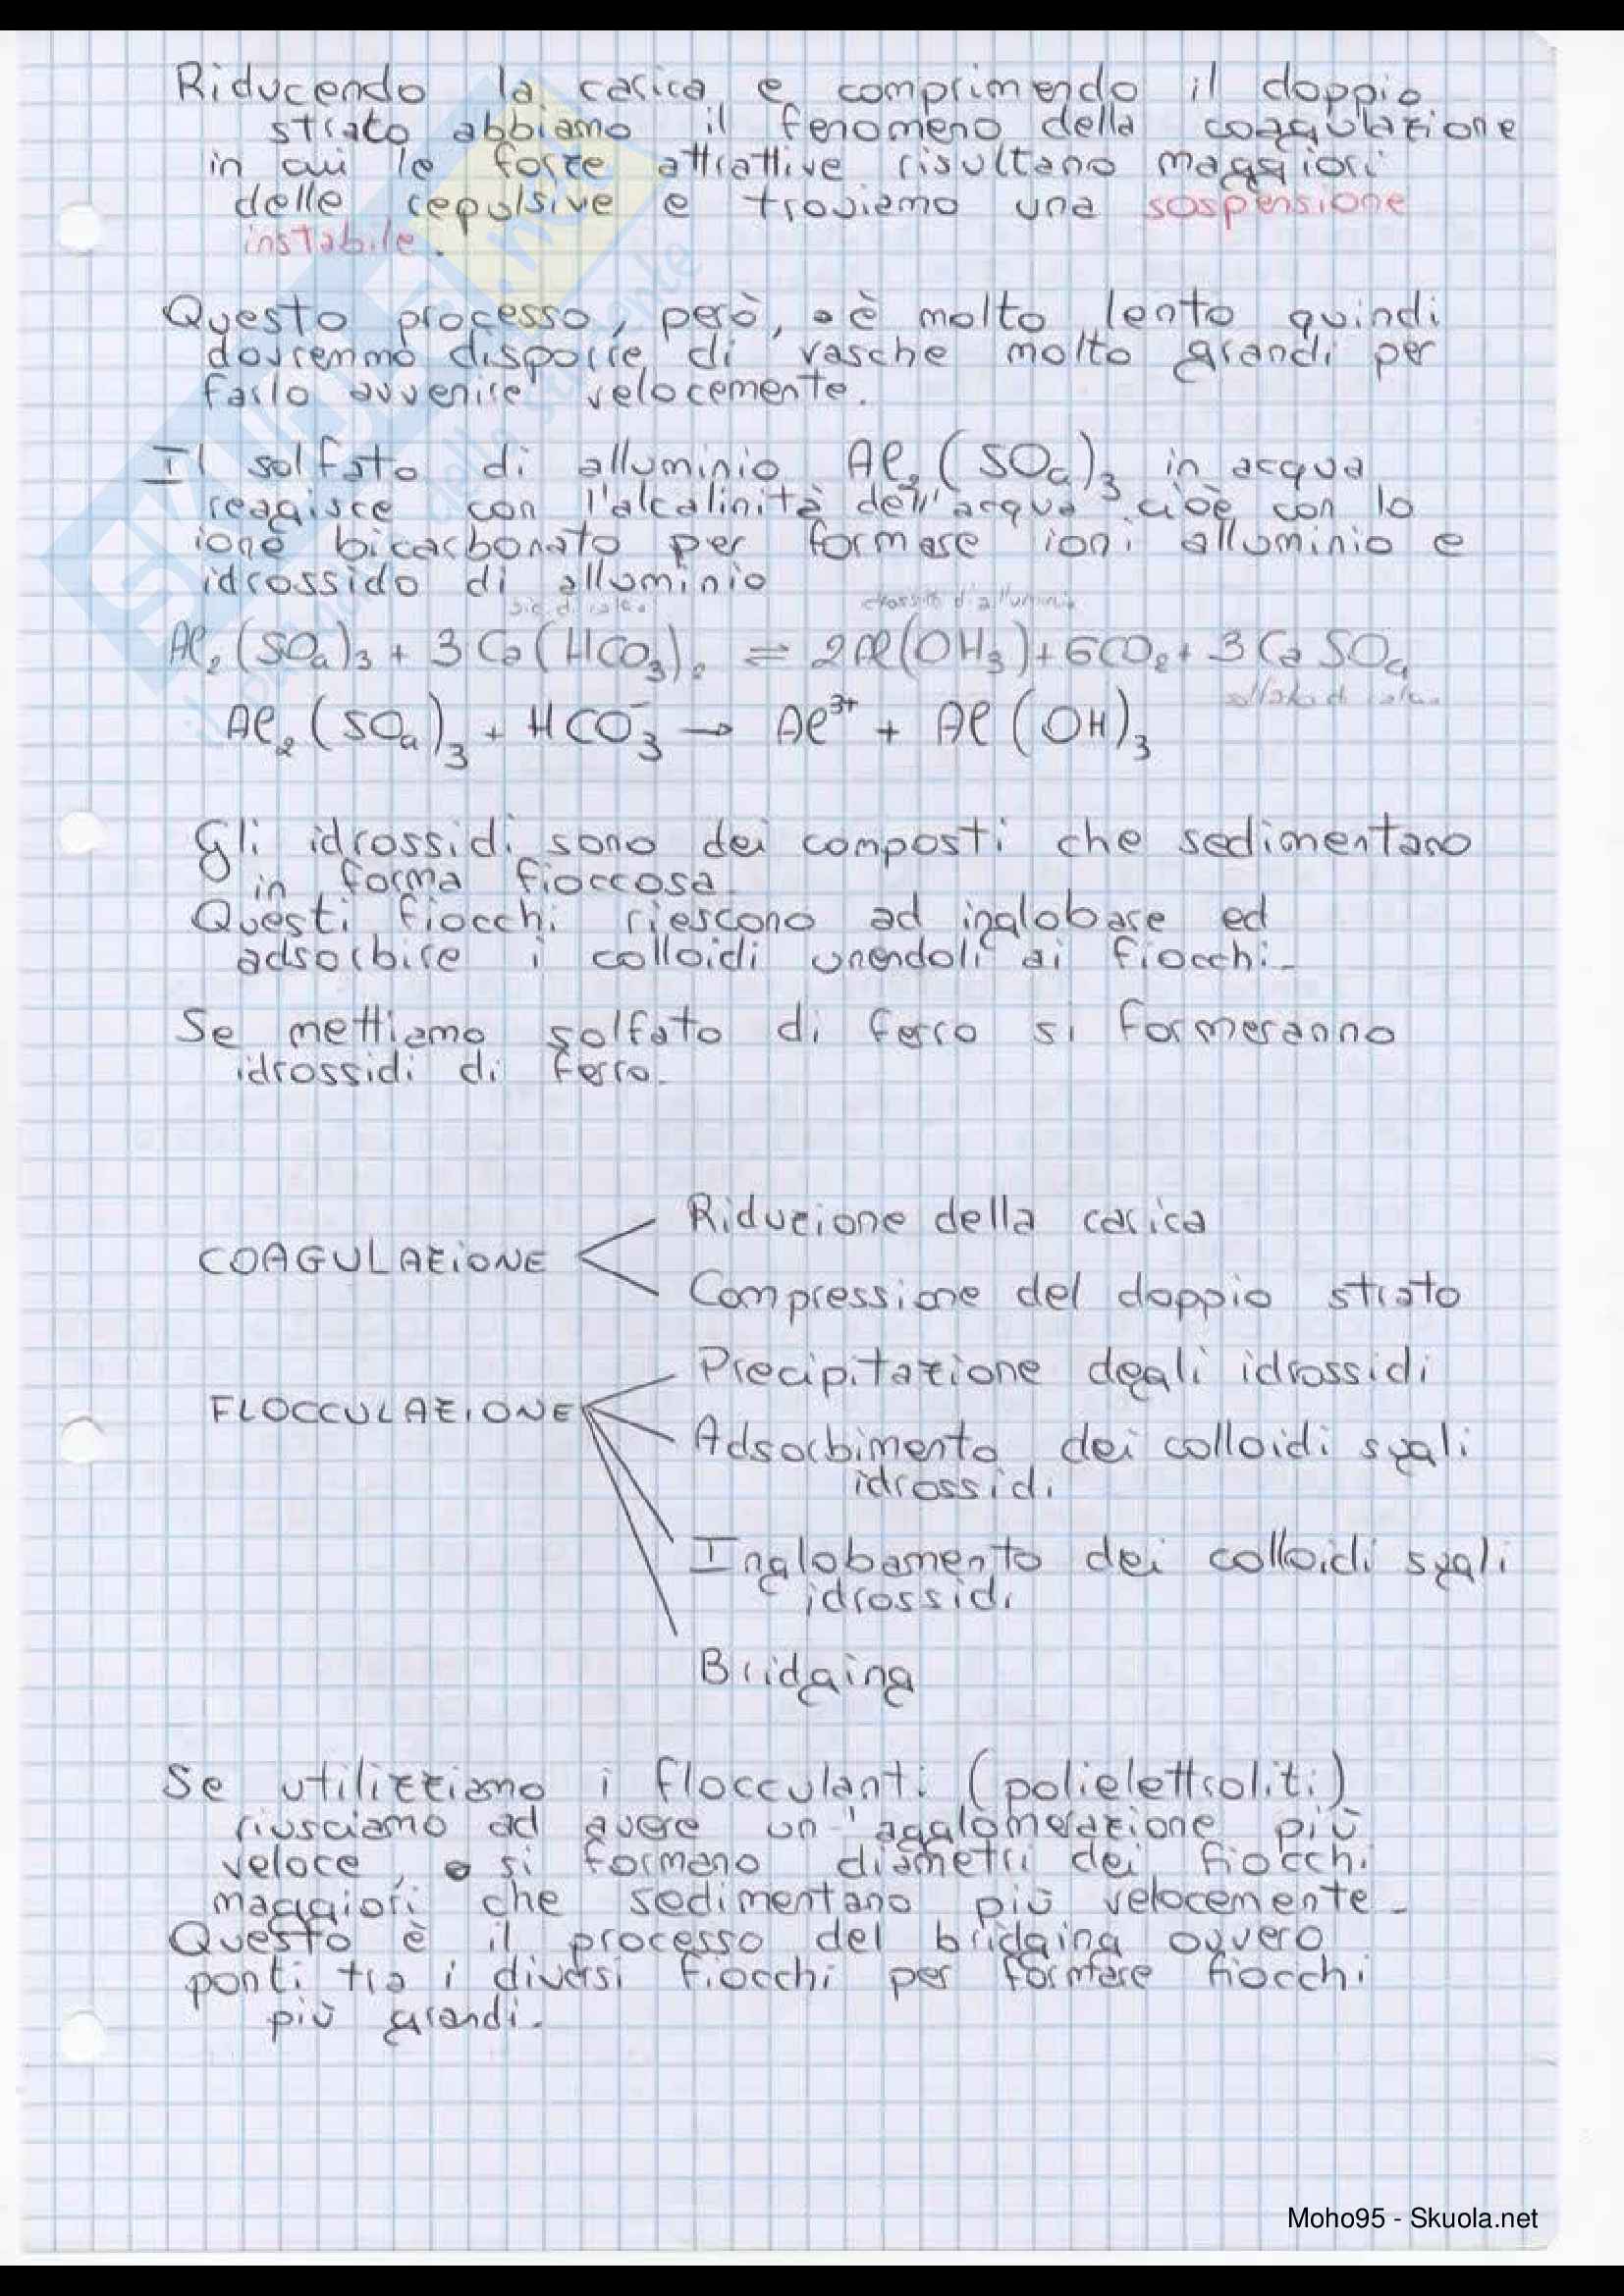 Riducendo la carica e comprimendo il doppio
strato abbiamo il fenomeno della coagulazione
in cui le forze attrattive risultano maggiori
delle repulsive e troviamo una sospensione
instabile.
Questo processo, però, è molto lento quindi
dovremmo disporre di vasche molto grandi per
farlo avvenire velocemente.
Il solfato di alluminio Al₂(SO₄)₃ in acqua
reagisce con l'alcalinità dell'acqua cioè con lo
ione bicarbonato per formare ioni alluminio e
idrossido di alluminio
di calcio idrossido d'alluminio
Al₂(SO₄)₃ + 3Ca(HCO₃)₂ ⇌ 2Al(OH₃) + 6CO₂ + 3CaSO₄
solfato di calcio
Al₂(SO₄)₃ + HCO₃⁻ → Al³⁺ + Al(OH)₃
Gli idrossidi sono dei composti che sedimentano
in forma fioccosa.
Questi fiocchi riescono ad inglobare ed
adsorbire i colloidi unendoli ai fiocchi.
Se mettiamo solfato di ferro si formeranno
idrossidi di ferro.
Riduzione della carica
COAGULAZIONE
Compressione del doppio strato
Precipitazione degli idrossidi
FLOCCULAZIONE
Adsorbimento dei colloidi sugli
idrossidi
Inglobamento dei colloidi sugli
idrossidi
Bridging
Se utilizziamo i flocculanti (polielettroliti)
riusciamo ad avere un'agglomerazione più
veloce, si formano diametri dei fiocchi
maggiori che sedimentano più velocemente.
Questo è il processo del bridging ovvero
ponti tra i diversi fiocchi per formare fiocchi
più grandi.
Moho95 - Skuola.net